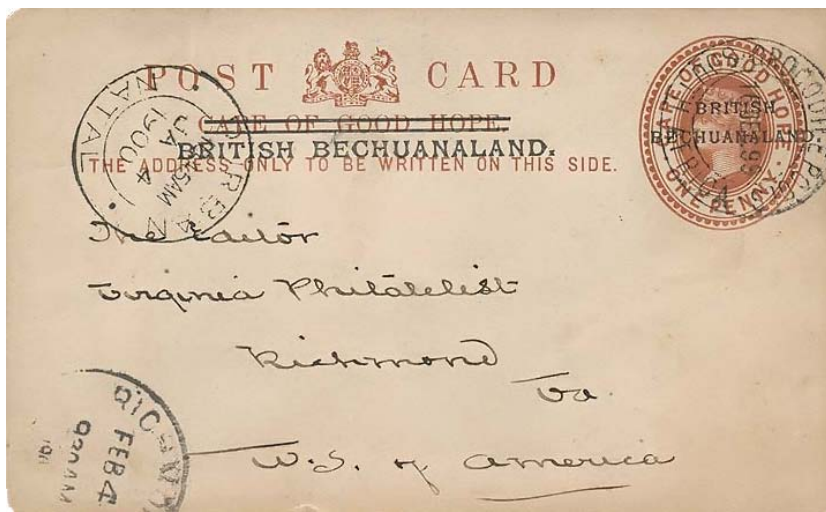 POST CARD
CAPE OF GOOD HOPE.
BRITISH BECHUANALAND.
THE ADDRESS ONLY TO BE WRITTEN ON THIS SIDE.
CAPE OF GOOD HOPE
BRITISH
BECHUANALAND
ONE PENNY.
DURBAN
NATAL
JA 4
1900
The Editor
Virginia Philatelist
Richmond
Va.
W.S. of America
RICHMON
FEB 4